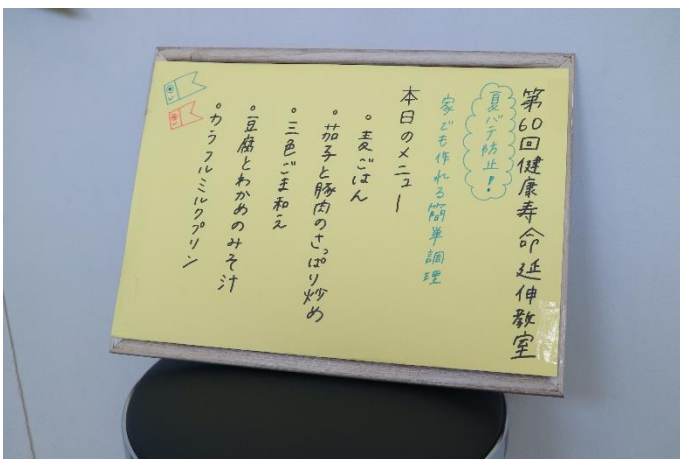 第60回健康寿命延伸教室
夏バテ防止!
家でも作れる簡単調理
本日のメニュー
・麦ごはん
・茄子と豚肉のさっぱり炒め
・三色ごま和え
・豆腐とわかめのみそ汁
・カラフルミルクプリン